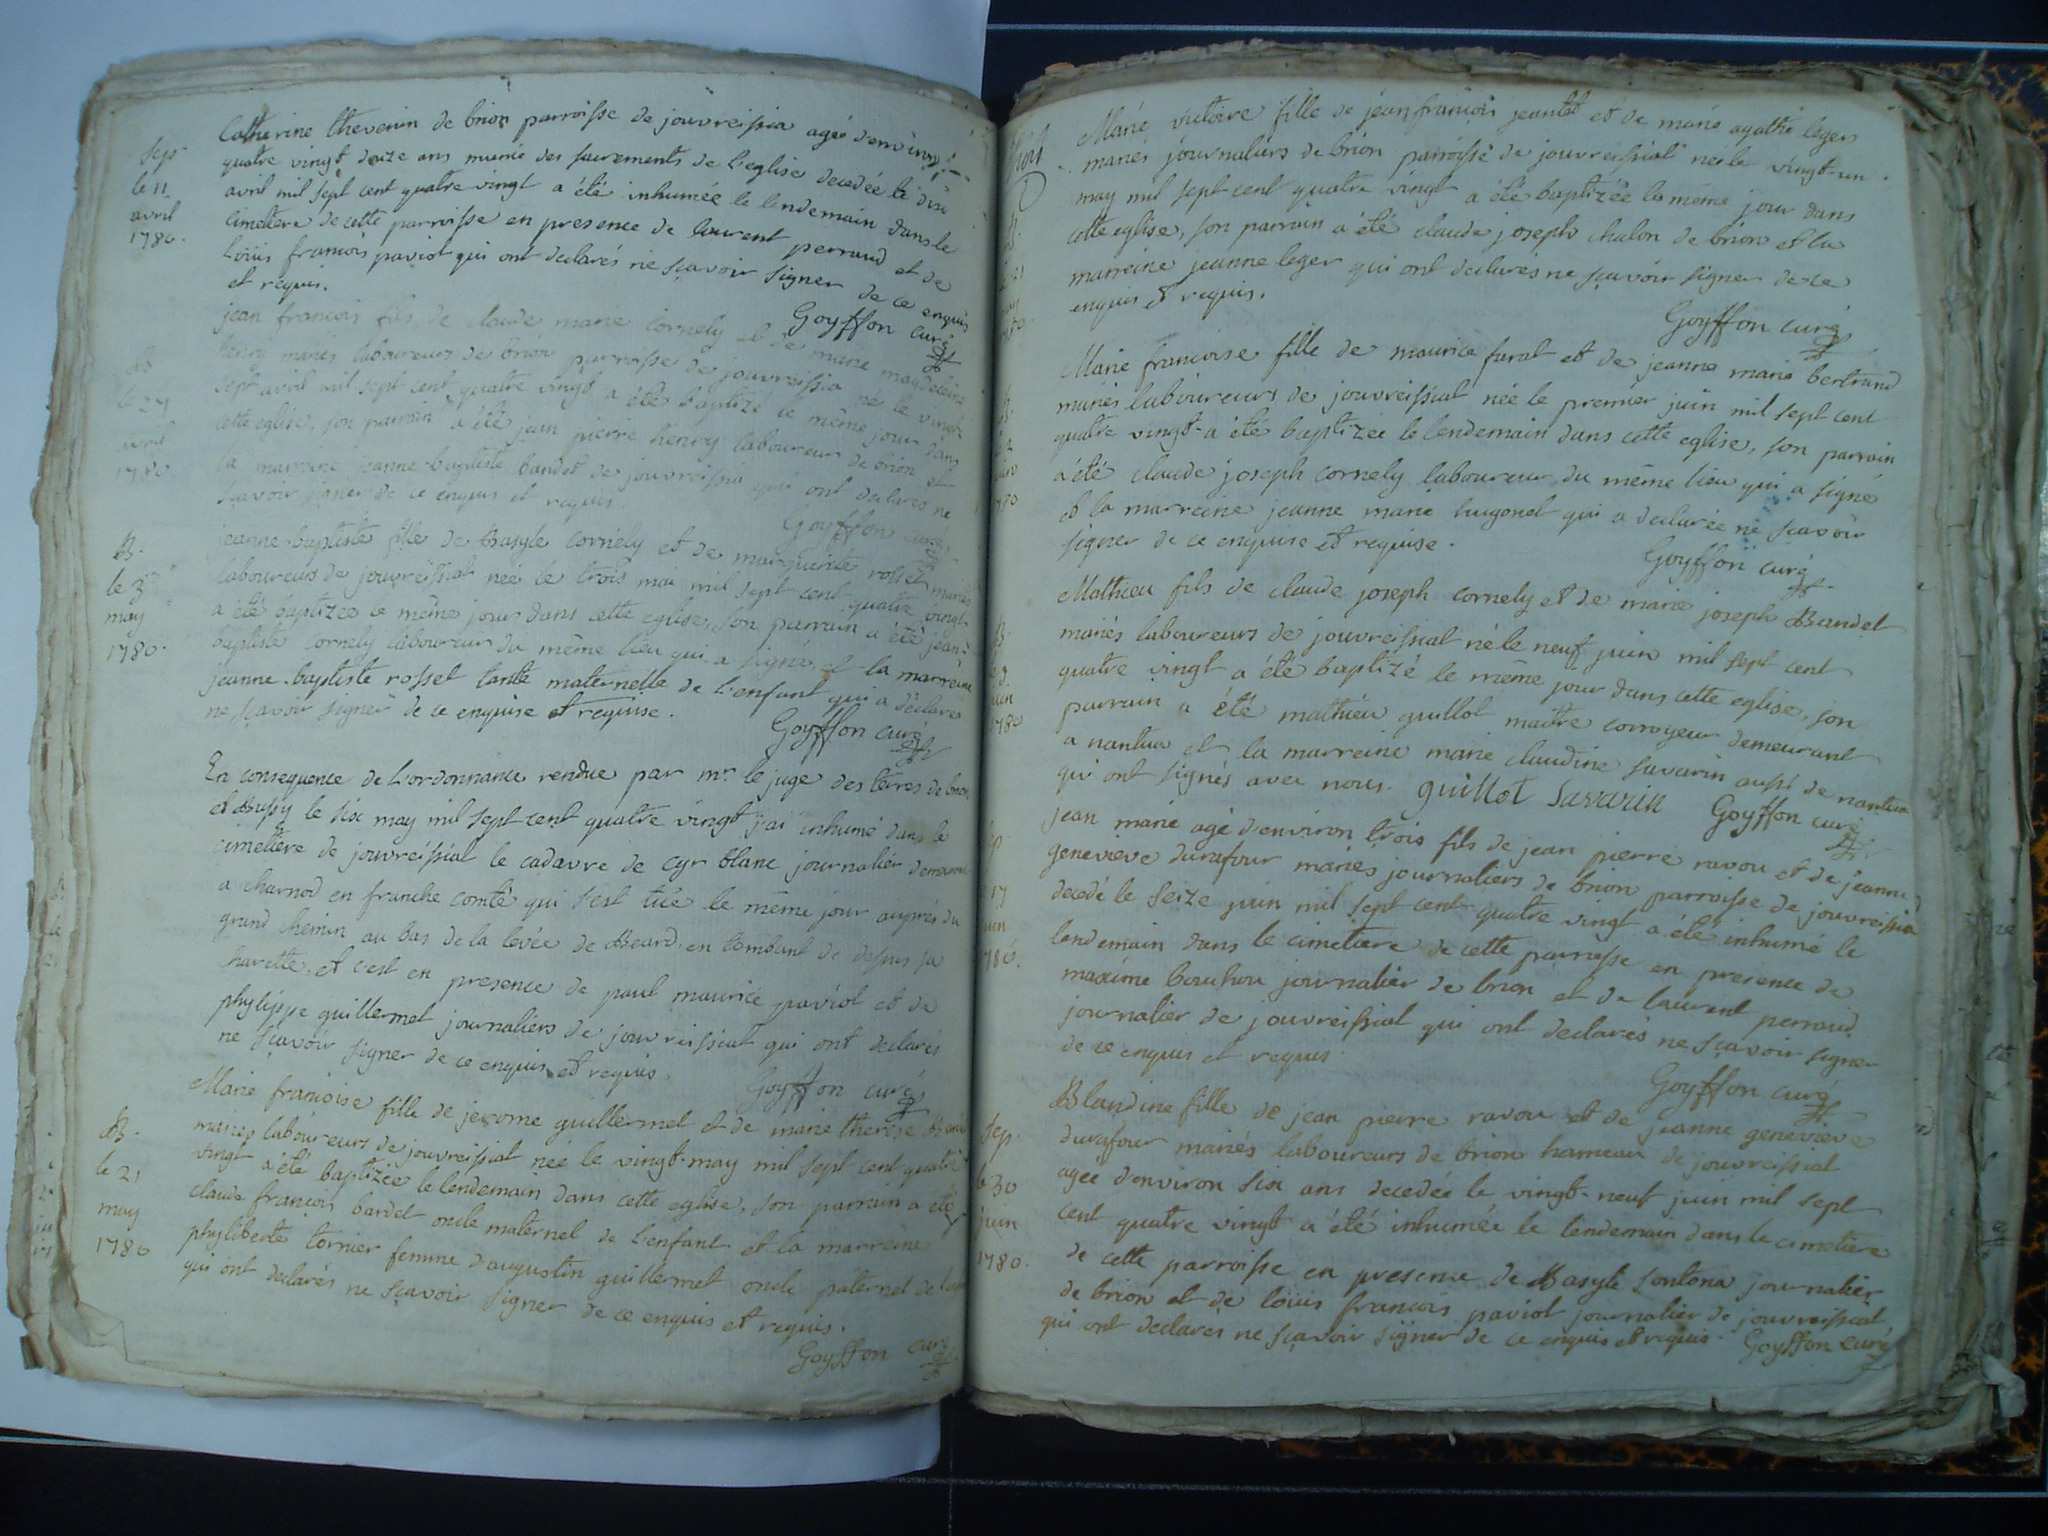 Sep.
le 11
avril
1780.
Catherine thevenin de brion parroisse de jouvreissia agée d'environ
quatre vingt douze ans munie des sacrements de l'eglise decedée le dix
avril mil sept cent quatre vingt a été inhumée le lendemain dans le
cimetiere de cette parroisse en presence de laurent perraud et de
Loüis francois paviot qui ont declarés ne sçavoir signer de ce enquis
et requis.
Goyffon curé
le 27
avril
1780.
jean francois fils de claude marie cornely et de marie magdeleine
henry mariés laboureurs de brion parroisse de jouvreissia né le vingt
sept avril mil sept cent quatre vingt a été baptizé le même jour dans
cette eglise, son parrain a été jean pierre henry laboureur de brion et
la marreine jeanne baptiste bandet de jouvreissia qui ont declarés ne
sçavoir signer de ce enquis et requis
Goyffon curé
B.
le 3
may
1780.
jeanne baptiste fille de Basyle cornely et de marguerite rosset mariés
laboureurs de jouvreissiat née le trois mai mil sept cent quatre vingt
a été baptizée le même jour dans cette eglise, son parrain a été jean-
baptiste cornely laboureur du même lieu qui a signé, et la marreine
jeanne baptiste rosset tante maternelle de l'enfant qui a declaré
ne sçavoir signer de ce enquise et requise.
Goyffon curé
En consequence de l'ordonnance rendue par mr. le juge des terres de brion
et Bussy le six may mil sept cent quatre vingt j'ai inhumé dans le
cimetiere de jouvreissiat le cadavre de Cyr blanc journalier demeurant
a charnod en franche comté qui s'est tüé le même jour auprès du
grand chemin au bas de la levée de Beard en tombant de dessus sa
charette. et c'est en presence de paul maurice paviot et de
phylippe guillermet journaliers de jouvreissiat qui ont declarés
ne sçavoir signer de ce enquis et requis.
Goyffon curé
B.
le 21
may
1780
Marie francoise fille de jerome guillermet et de marie therese
mariés laboureurs de jouvreissiat née le vingt may mil sept cent quatre
vingt a été baptizée le lendemain dans cette eglise, son parrain a été
claude francois bardet oncle maternel de l'enfant et la marreine
phyliberte tornier femme d'augustin guillermet oncle paternel de
qui ont declarés ne sçavoir signer de ce enquis et requis.
Goyffon curé
Marie victoire fille de jean francois jeantet et de marie agathe legers
mariés journaliers de brion parroisse de jouvreissiat née le vingt-un
may mil sept cent quatre vingt a été baptizée le même jour dans
cette eglise, son parrain a été claude joseph chalon de brion et la
marreine jeanne leger qui ont declarés ne sçavoir signer de ce
enquis et requis.
Goyffon curé
Marie francoise fille de maurice furat et de jeanne marie bertrand
mariés laboureurs de jouvreissiat née le premier juin mil sept cent
quatre vingt a été baptizée le lendemain dans cette eglise, son parrain
a été claude joseph cornely laboureur du même lieu qui a signé
et la marreine jeanne marie hugonet qui a declarée ne scavoir
signer de ce enquise et requise.
Goyffon curé
Mathieu fils de claude joseph cornely et de marie joseph Bandet
mariés laboureurs de jouvreissiat né le neuf juin mil sept cent
quatre vingt a été baptizé le même jour dans cette eglise, son
parrain a été mathieu guillot maitre corroyeur demeurant
a nantua et la marreine marie claudine savarin aussi de nantua
qui ont signés avec nous. guillot Savarin Goyffon curé
17
juin
1780.
jean marie agé d'environ trois fils de jean pierre ravou et de jeanne
genevieve durafour mariés journaliers de brion parroisse de jouvreissia
decedé le seize juin mil sept cent quatre vingt a été inhumé le
lendemain dans le cimetiere de cette parroisse en presence de
maxime bouhou journalier de brion et de laurent perraud
journalier de jouvreissiat qui ont declarés ne sçavoir signer
de ce enquis et requis.
Goyffon curé
Sep.
le 30
juin
1780.
Blandine fille de jean pierre ravou et de jeanne genevieve
durafour mariés laboureurs de brion hameau de jouvreissiat
agée d'environ six ans decedée le vingt-neuf juin mil sept
cent quatre vingt a été inhumée le lendemain dans le cimetiere
de cette parroisse en presence de Basyle sontona journalier
de brion et de loüis francois paviot journalier de jouvreissiat
qui ont declarés ne sçavoir signer de ce enquis et requis. Goyffon curé